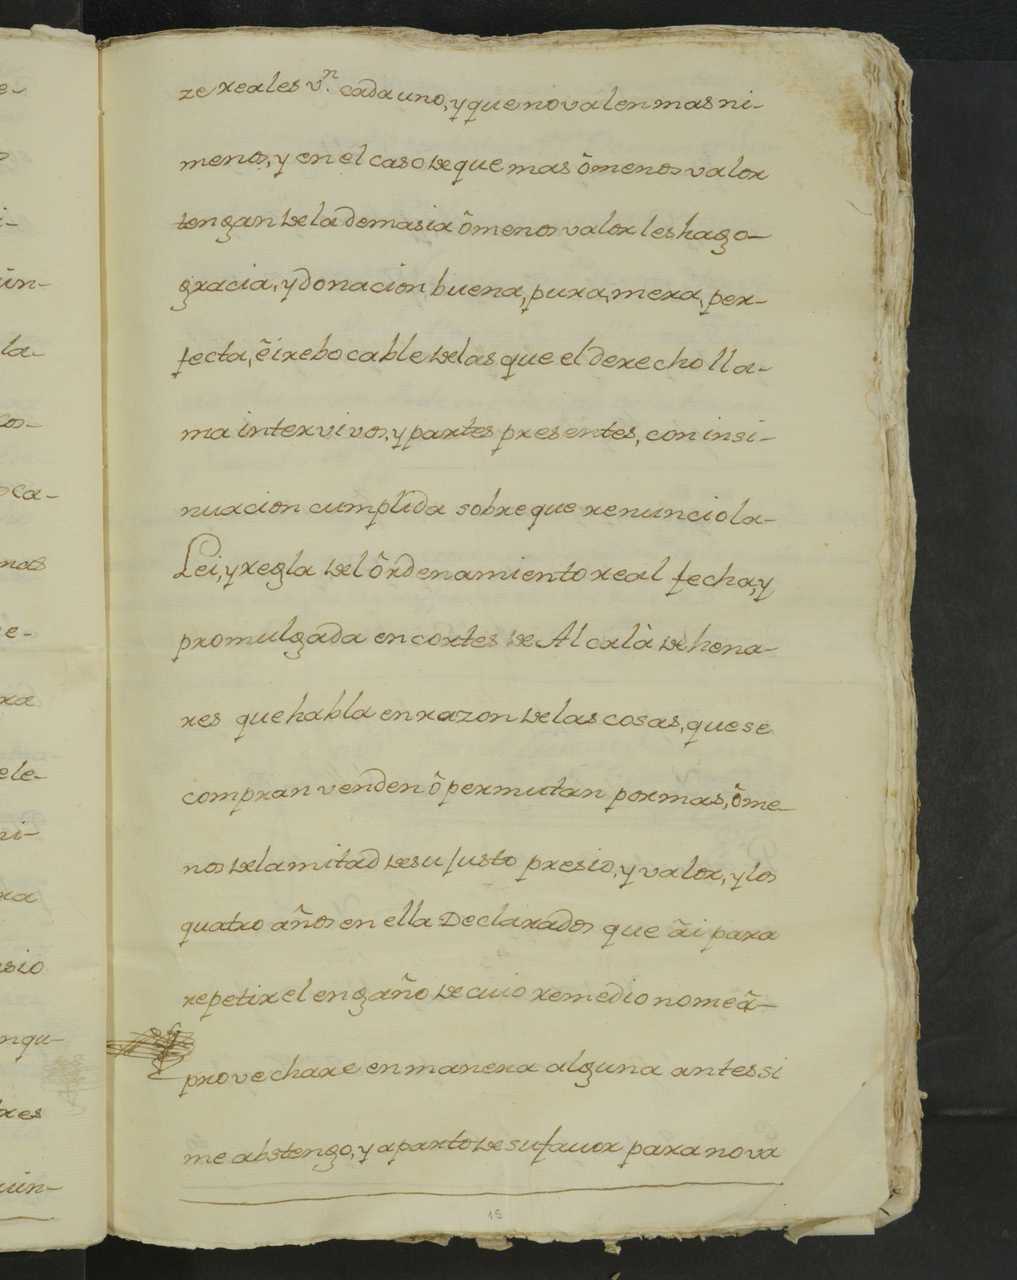 ze reales v.n cada uno, y que no valen mas ni-
menos, y en el caso de que mas ô menos valor
tengan de la demasia ô menos valor les hago-
gracia, y donacion buena, pura, mera, per-
fecta, ê irebocable de las que el derecho lla-
ma inter vivos, y partes presentes, con insi-
nuacion cumplida sobre que renuncio la-
Lei, y regla del ôrdenamiento real fecha, y
promulgada en cortes de Alcalà de hena-
res que habla en razon de las cosas, que se
compran venden ô permutan por mas, ô me-
nos de la mitad de su justo presio, y valor, y los
quatro años en ella Declarados que âi para
repetir el engaño de cuio remedio no me â-
provechare en manera alguna antes si
me abstengo, y aparto de su favor para no va
15